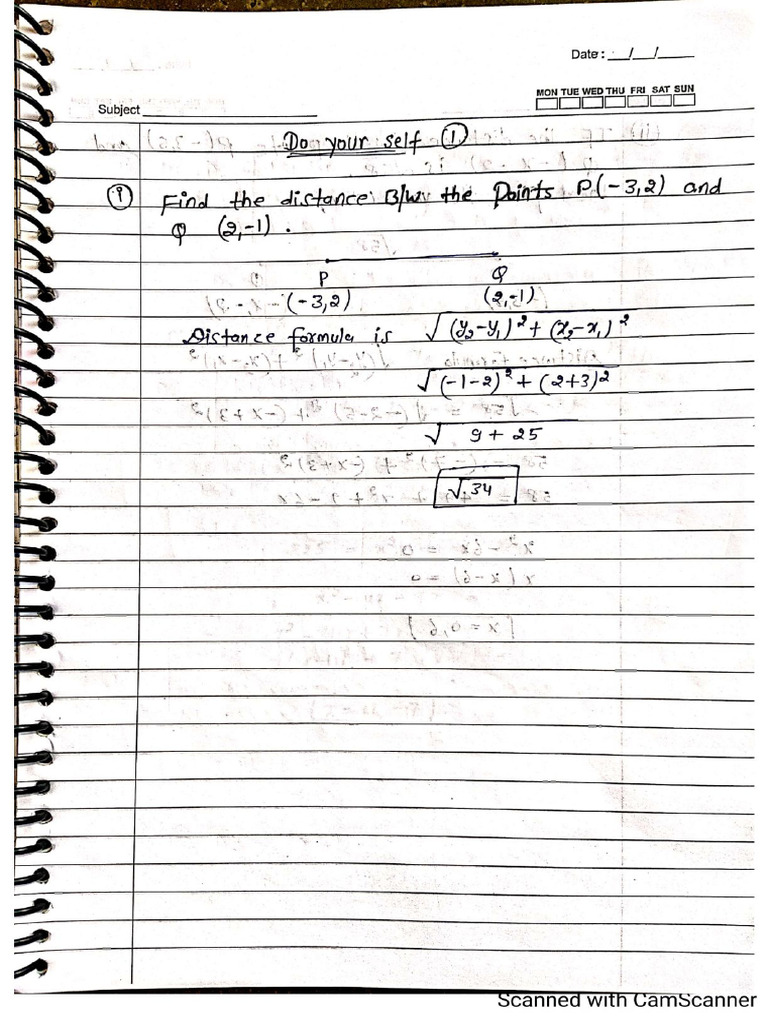 Date : __/__/____
MON TUE WED THU FRI SAT SUN
Subject
Do your self ①
(i) Find the distance B/w the Points P(-3,2) and
Q (2,-1) .
P Q
(-3,2) (2,-1)
Distance formula is √(y₂-y₁)² + (x₂-x₁)²
√(-1-2)² + (2+3)²
√ 9 + 25
√34
Scanned with CamScanner